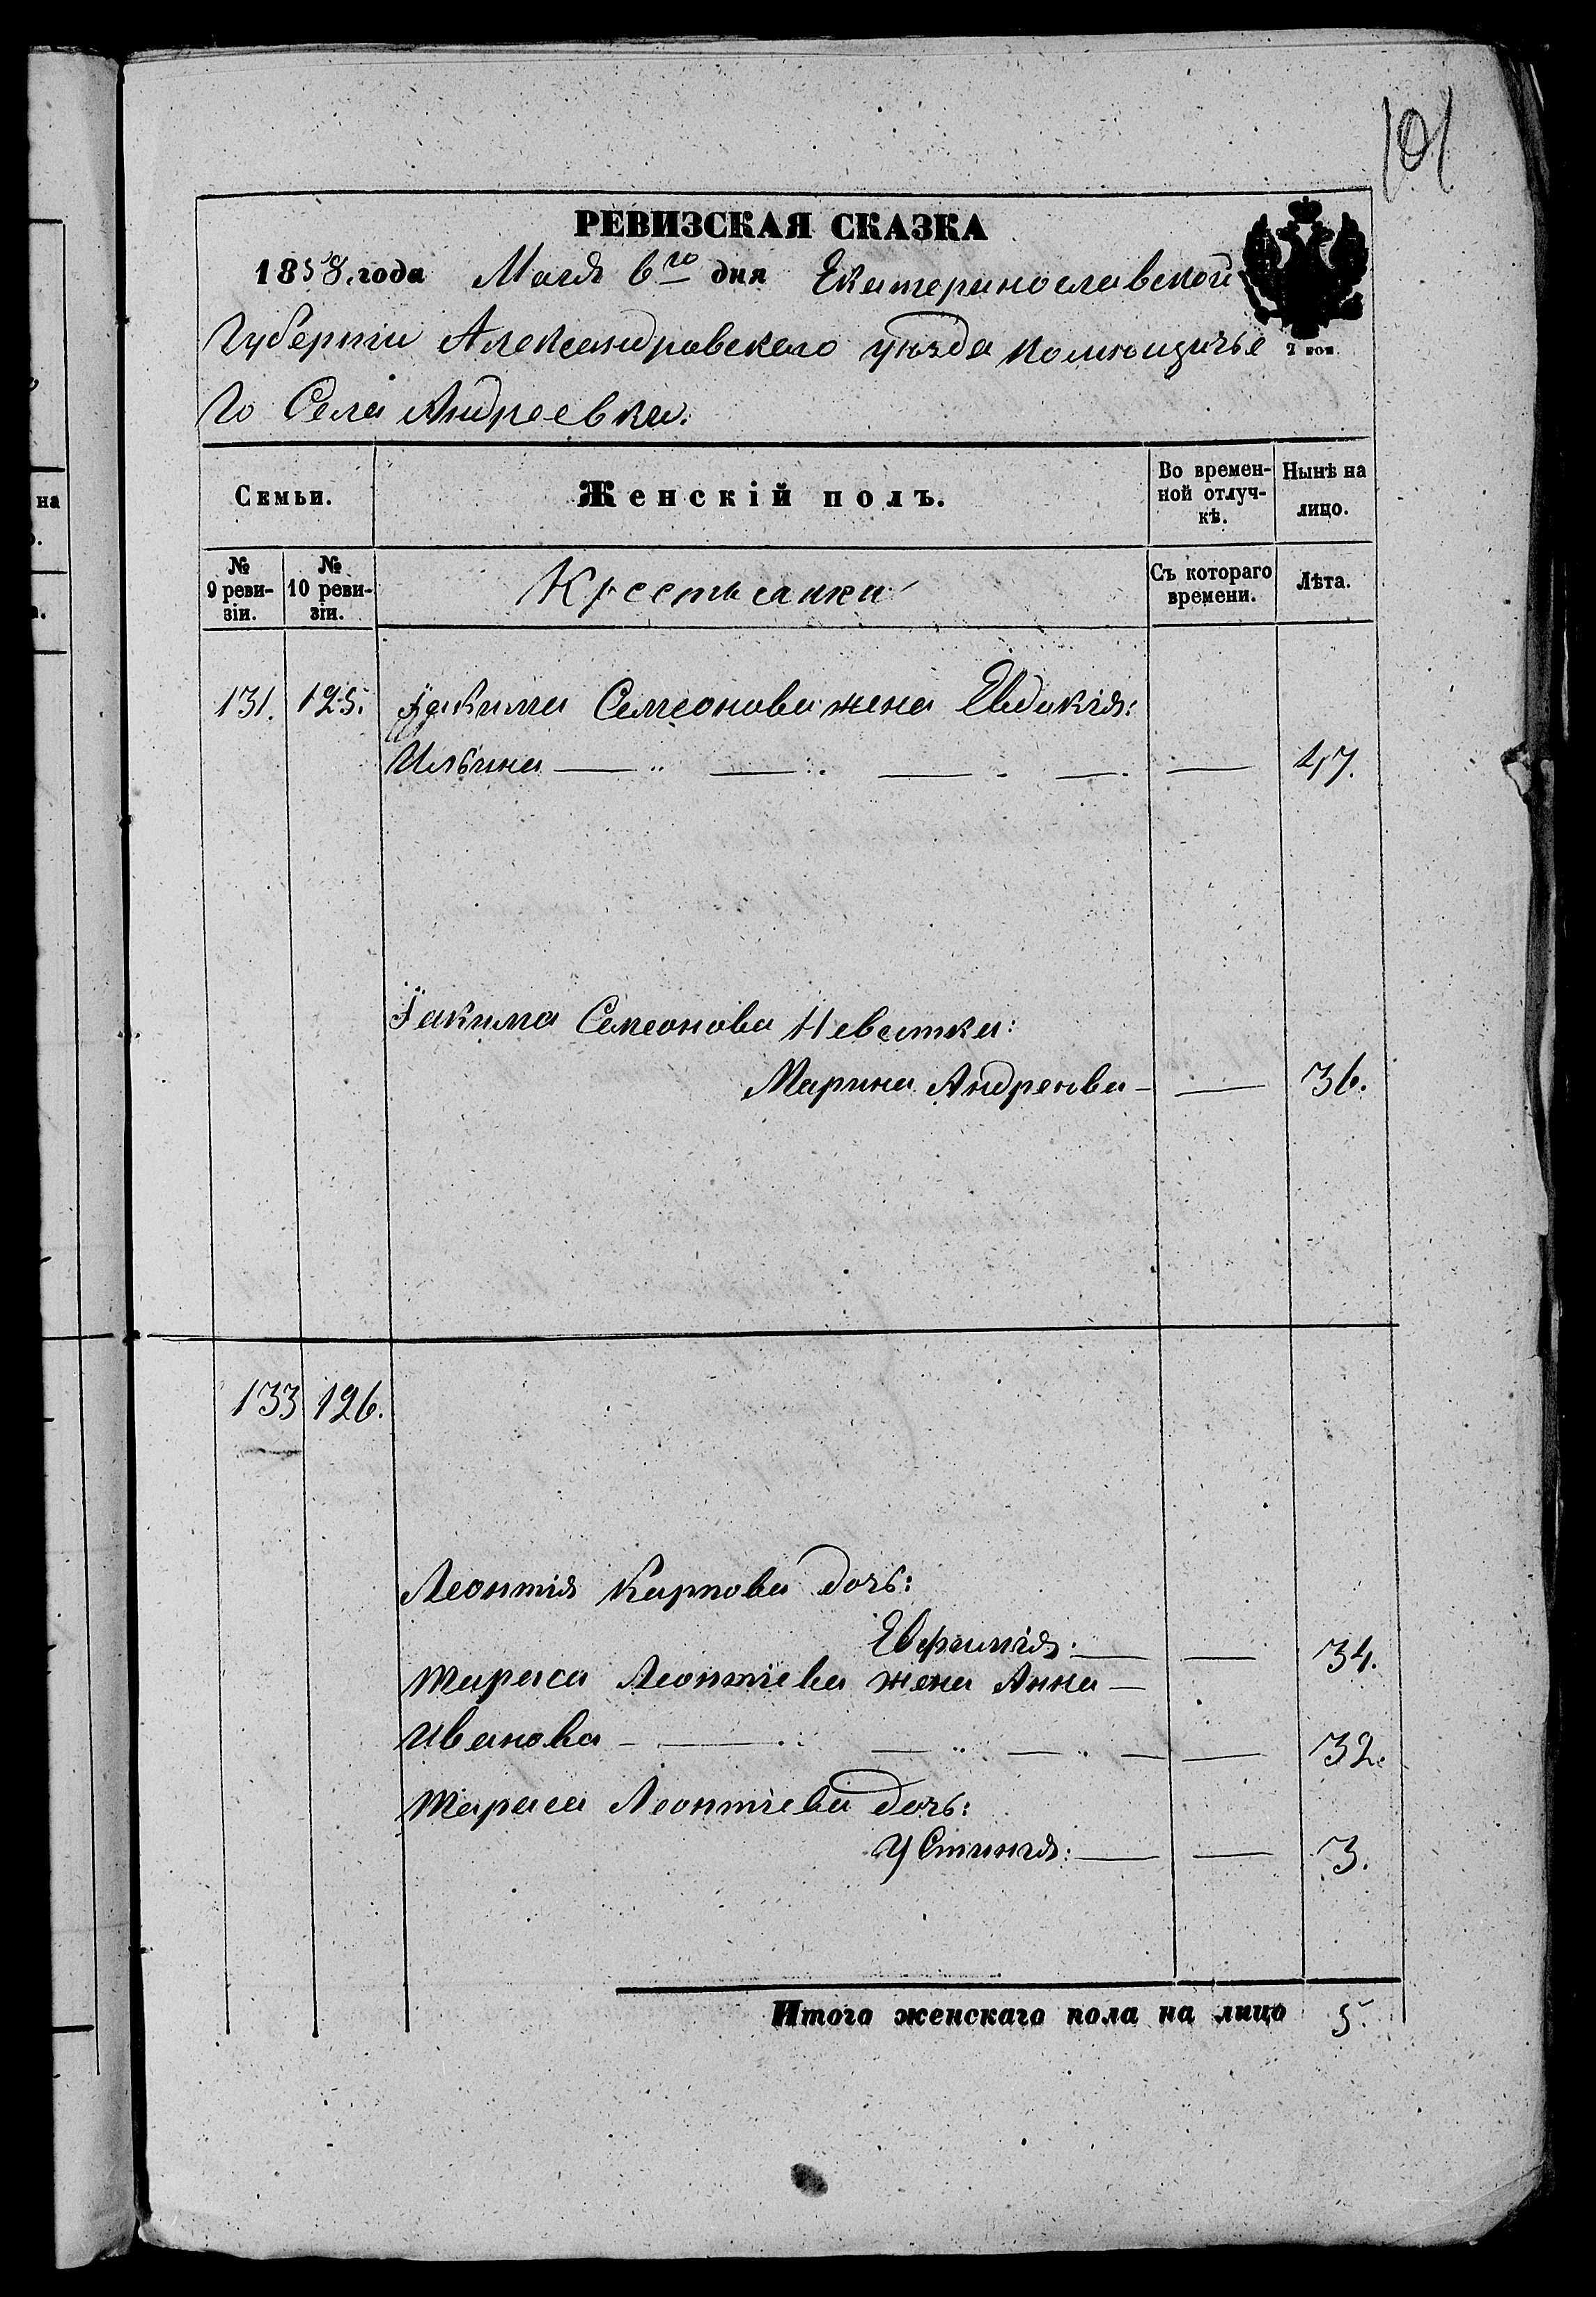 101
РЕВИЗСКАЯ СКАЗКА
1858. года Маія 6го дня Екатеринославской
Губерніи Александровскаго уѣзда помѣщичье
го Села Андреевки.
2 коп.
Семьи. Женскій полъ. Во времен-ной отлуч-кѣ. Нынѣ на лицо.
№ 9 реви-зіи. № 10 реви-зіи. Крестьянки Съ котораго времени. Лѣта.
131. 125. Іакима Семеонова жена Евдокія:
Ильина 47.
Іакима Семеонова Невестка:
Марина Андреева 36.
133 126.
Леонтія Карпова дочь:
Евфимія. 34.
Тараса Леонтіева жена Анна
Иванова 32.
Тараса Леонтіева дочь:
Устинія: 3.
Итого женскаго пола на лицо 5.
на